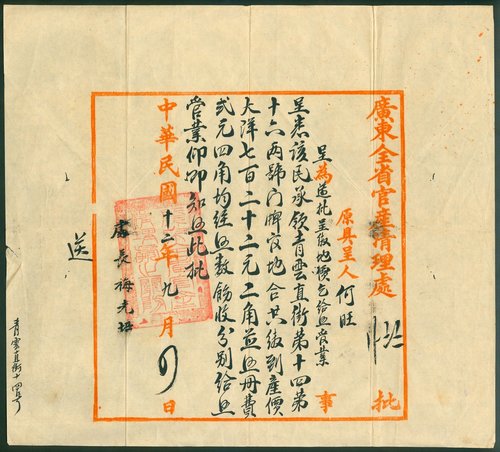 廣東全省官產清理處 批
原具呈人何旺
呈為遵批呈繳地價乞給照營業 事
呈悉該民承領青雲直街第十四第
十六兩號門牌官地合共繳到產價
大洋七百二十二元二角並照册費
弍元四角均經照數飭收分別給照
營業仰即知照此批
中華民國十二年九月 日
處長梅光培
送
青雲直街十四号